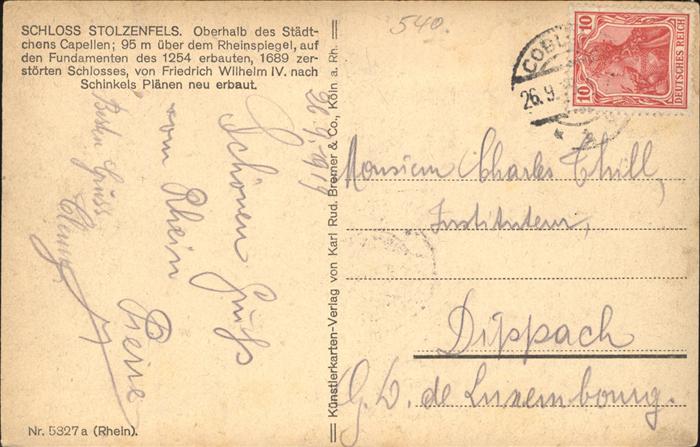 SCHLOSS STOLZENFELS. Oberhalb des Städt-
chens Capellen; 95 m über dem Rheinspiegel, auf
den Fundamenten des 1254 erbauten, 1689 zer-
störten Schlosses, von Friedrich Wilhelm IV. nach
Schinkels Plänen neu erbaut.
540.
COBL
26.9.
10 10
DEUTSCHES REICH
26.9.1919
Schönen Gruss
vom Rhein
Besten Gruss
Künstlerkarten-Verlag von Karl Rud. Bremer & Co., Köln a. Rh.
Monsieur Charles Thill,
Instituteur,
Dippach
G. D. de Luxembourg.
Nr. 5327a (Rhein).